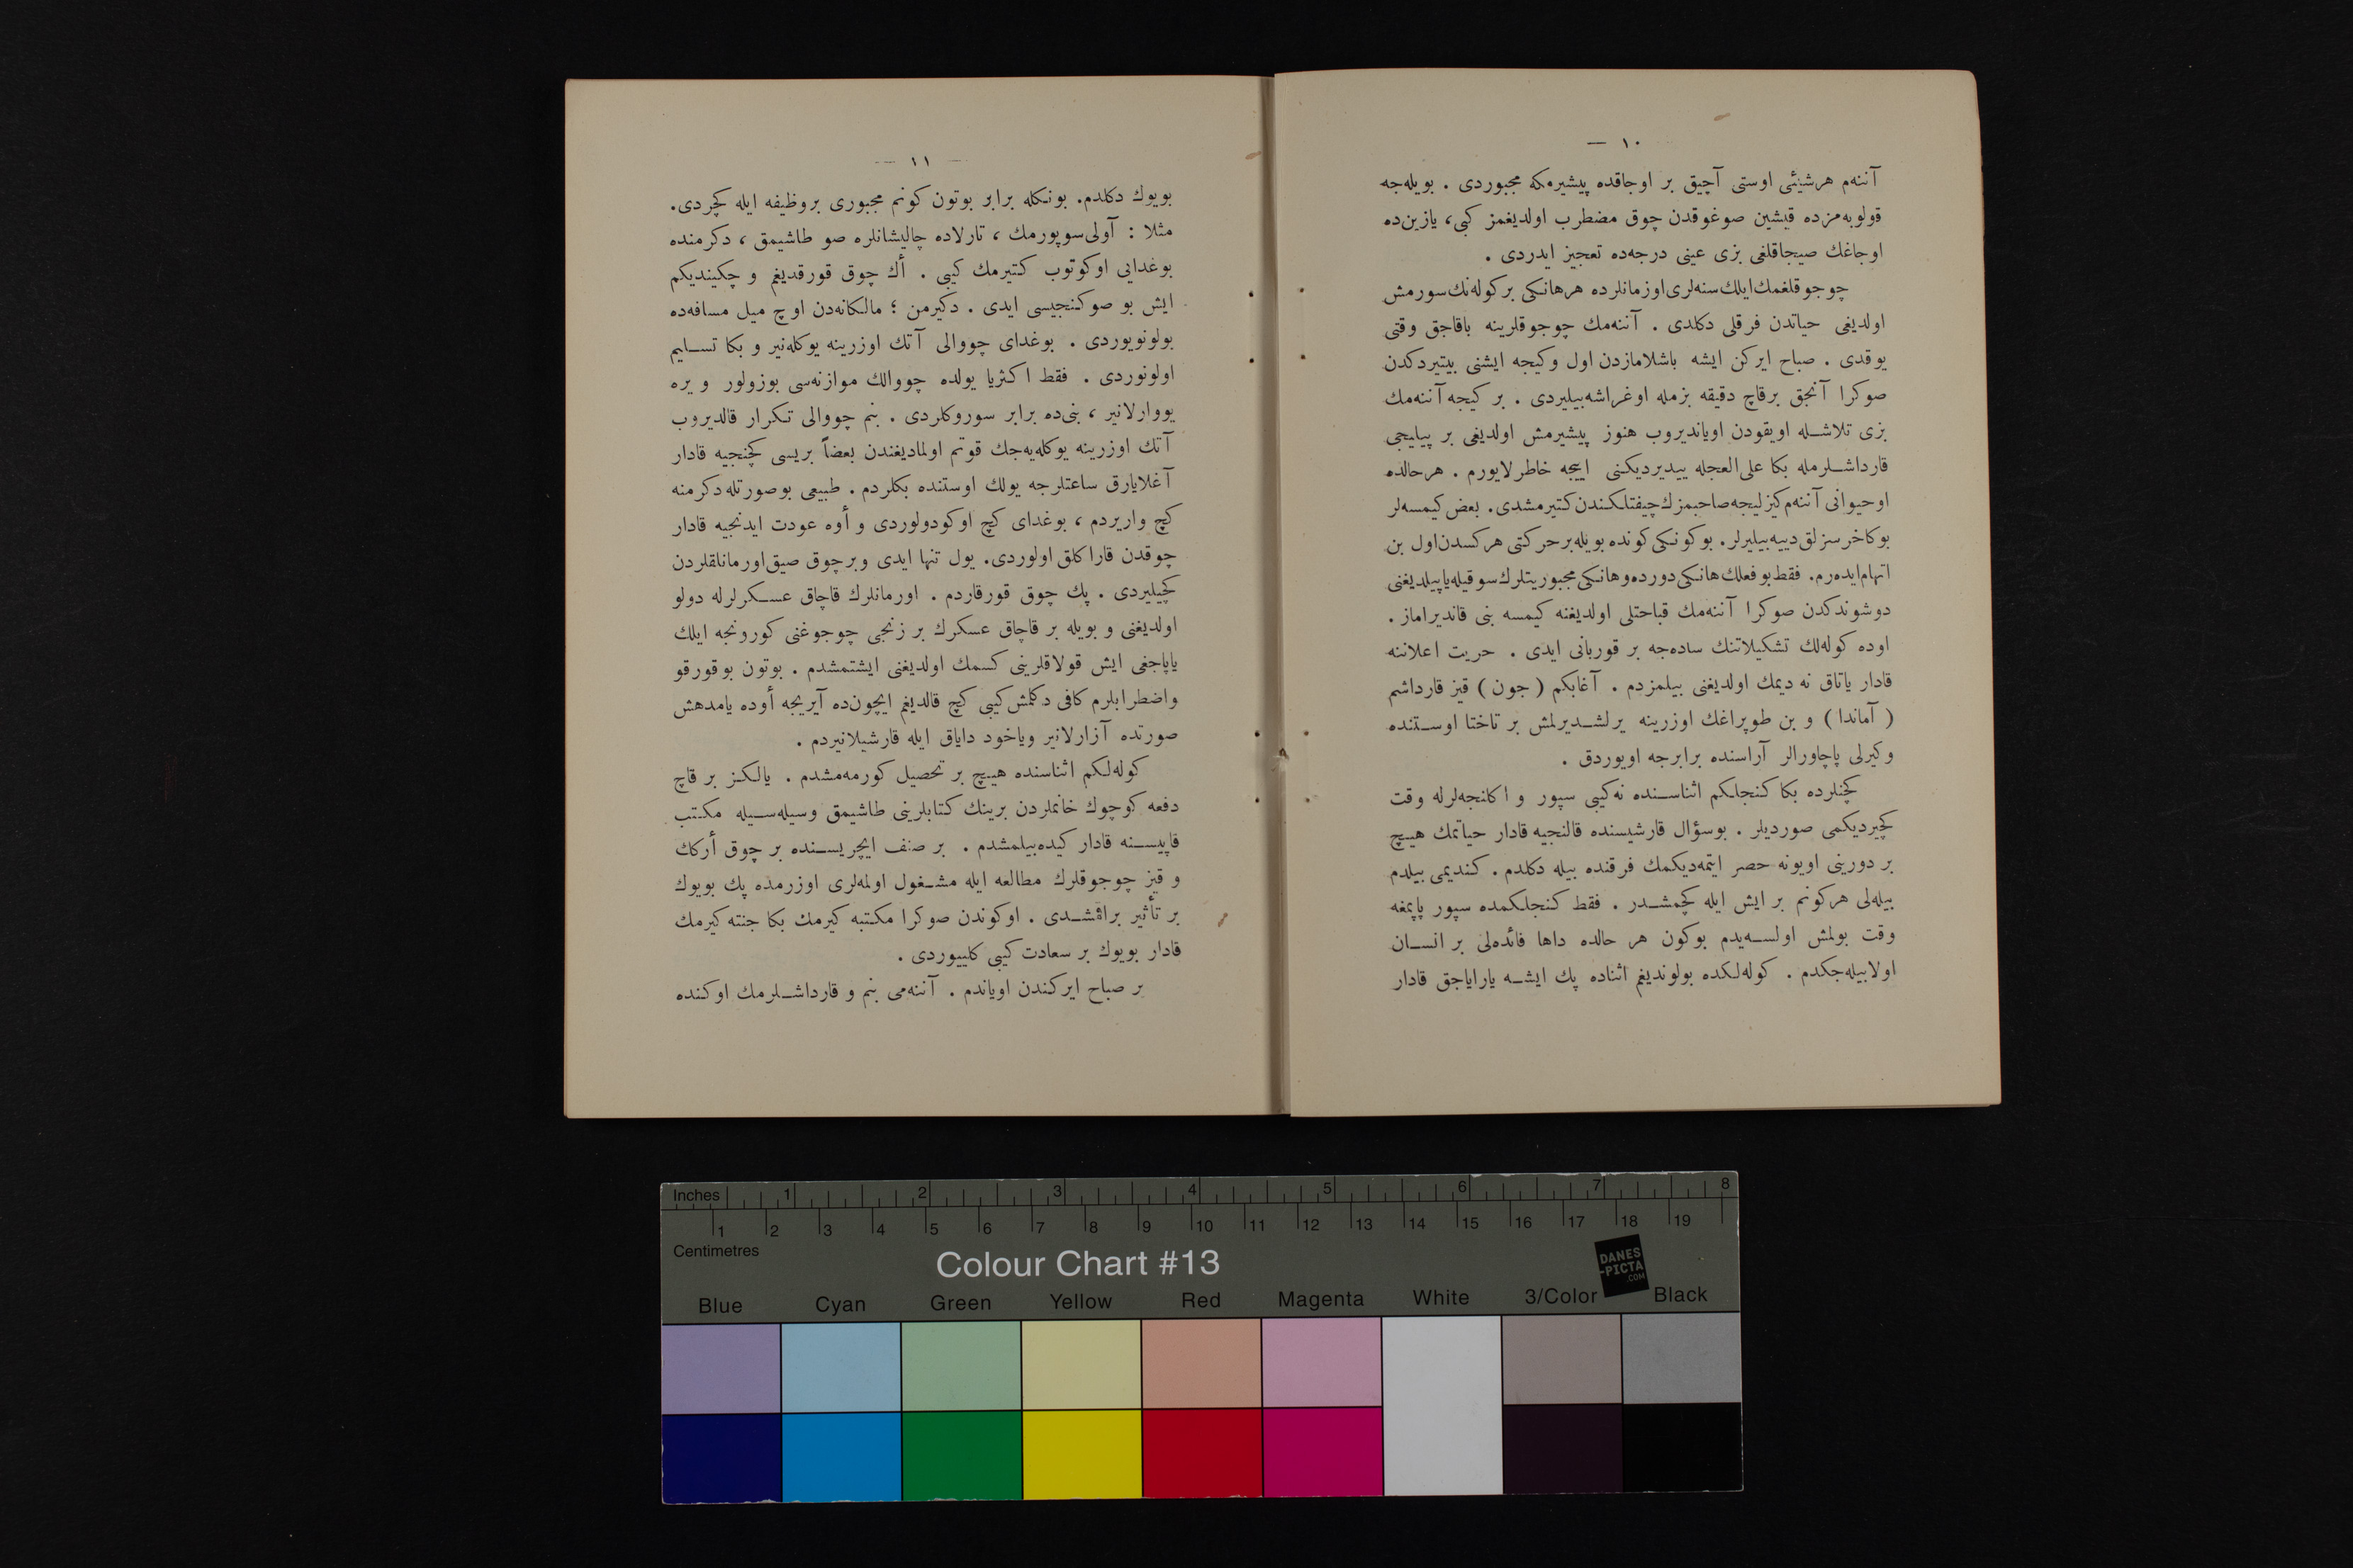 ١٠ —
آننه‌م هرشیئی اوستی آچیق بر اوجاقده پیشیرمكه مجبوردی . بویله‌جه
قولوبه‌مزده قیشین صوغوقدن چوق مضطرب اولدیغمز كبی، یازین‌ده
اوجاغك صیجاقلغی بزی عینی درجه‌ده تعجیز ایدردی .
چوجوقلغمك ایلك سنه‌لری اوزمانلرده هرهانكی بر كوله‌نك سورمش
اولدیغی حیاتدن فرقلی دكلدی . آننه‌مك چوجوقلرینه باقاجق وقتی
یوقدی . صباح ایركن ایشه باشلامازدن اول وكیجه ایشنی بیتیردكدن
صوكرا آنجق برقاچ دقیقه بزمله اوغراشه‌بیلیردی . بر كیجه آننه‌مك
بزی تلاشله اویقودن اویاندیروب هنوز پیشیرمش اولدیغی بر پیلیجی
قارداشلرمله بكا علی‌العجله ییدیردیكنی اییجه خاطرلایورم . هرحالده
اوحیوانی آننه‌م كیزلیجه صاحبمزك چیفتلكندن كتیرمشدی. بعض كیمسه‌لر
بوكا خرسزلق دییه‌بیلیرلر. بوكونكی كونده بویله بر حركتی هركسدن اول بن
اتهام ایده‌رم. فقط بو فعلك هانكی دورده وهانكی مجبوریتلرك سوقیله یاپیلدیغنی
دوشوندكدن صوكرا آننه‌مك قباحتلی اولدیغنه كیمسه بنی قاندیراماز .
اوده كوله‌لك تشكیلاتنك ساده‌جه بر قوربانی ایدی . حریت اعلاننه
قادار یاتاق نه دیمك اولدیغنی بیلمزدم . آغابكم ( جون ) قیز قارداشم
( آماندا ) و بن طوپراغك اوزرینه یرلشدیرلمش بر تاختا اوستنده
وكیرلی پاچاورالر آراسنده برابرجه اویوردق .
كچنلرده بكا كنجلكم اثناسنده نه‌كیبی سپور و اكلنجه‌لرله وقت
كچیردیكمی صوردیلر . بوسؤال قارشیسنده قالنجیه قادار حیاتمك هیچ
بر دورینی اویونه حصر ایتمه‌دیكمك فرقنده بیله دكلدم . كندیمی بیلدم
بیله‌لی هركونم بر ایش ایله كچمشدر . فقط كنجلكمده سپور یاپمغه
وقت بولمش اولسه‌یدم بوكون هر حالده داها فائده‌لی بر انسان
اولابیله‌جكدم . كوله‌لكده بولوندیغم اثناده پك ایشه یارایاجق قادار
— ١١ —
بویوك دكلدم. بونكله برابر بوتون كونم مجبوری بروظیفه ایله كچردی.
مثلا : آولی‌سوپورمك ، تارلاده چالیشانلره صو طاشیمق ، دكرمنده
بوغدایی اوكوتوب كتیرمك كیبی . أك چوق قورقدیغم و چكیندیكم
ایش بو صوكنجیسی ایدی . دكیرمن ؛ مالكانه‌دن اوچ میل مسافه‌ده
بولونویوردی . بوغدای چووالی آتك اوزرینه یوكله‌نیر و بكا تسلیم
اولونوردی . فقط اكثریا یولده چووالك موازنه‌سی بوزولور و یره
یووارلانیر ، بنی‌ده برابر سوروكلردی . بنم چووالی تكرار قالدیروب
آتك اوزرینه یوكله‌یه‌جك قوتم اولمادیغندن بعضاً بریسی كچنجیه قادار
آغلایارق ساعتلرجه یولك اوستنده بكلردم . طبیعی بوصورتله دكرمنه
كچ واریردم ، بوغدای كچ اوكودولوردی و أوه عودت ایدنجیه قادار
چوقدن قاراكلق اولوردی. یول تنها ایدی وبرچوق صیق اورمانلقلردن
كچیلیردی . پك چوق قورقاردم . اورمانلرك قاچاق عسكرلرله دولو
اولدیغنی و بویله بر قاچاق عسكرك بر زنجی چوجوغنی كورونجه ایلك
یاپاجغی ایش قولاقلرینی كسمك اولدیغنی ایشتمشدم . بوتون بو قورقو
واضطرابلرم كافی دكلمش كیبی كچ قالدیغم ایچون‌ده آیریجه أوده یامدهش
صورتده آزارلانیر ویاخود دایاق ایله قارشیلانیردم .
كوله‌لكم اثناسنده هیچ بر تحصیل كورمه‌مشدم . یالكز بر قاچ
دفعه كوچوك خانملردن برینك كتابلرینی طاشیمق وسیله‌سیله مكتب
قاپیسنه قادار كیده‌بیلمشدم . بر صنف ایچریسنده بر چوق أركك
و قیز چوجوقلرك مطالعه ایله مشغول اولمه‌لری اوزرمده پك بویوك
بر تأثیر براقمشدی . اوكوندن صوكرا مكتبه كیرمك بكا جنته كیرمك
قادار بویوك بر سعادت كیبی كلییوردی .
بر صباح ایركندن اویاندم . آننه‌می بنم و قارداشلرمك اوكنده
Inches 1 2 3 4 5 6 7 8
1 2 3 4 5 6 7 8 9 10 11 12 13 14 15 16 17 18 19
Centimetres
Colour Chart #13
DANES
-PICTA
.COM
Blue Cyan Green Yellow Red Magenta White 3/Color Black